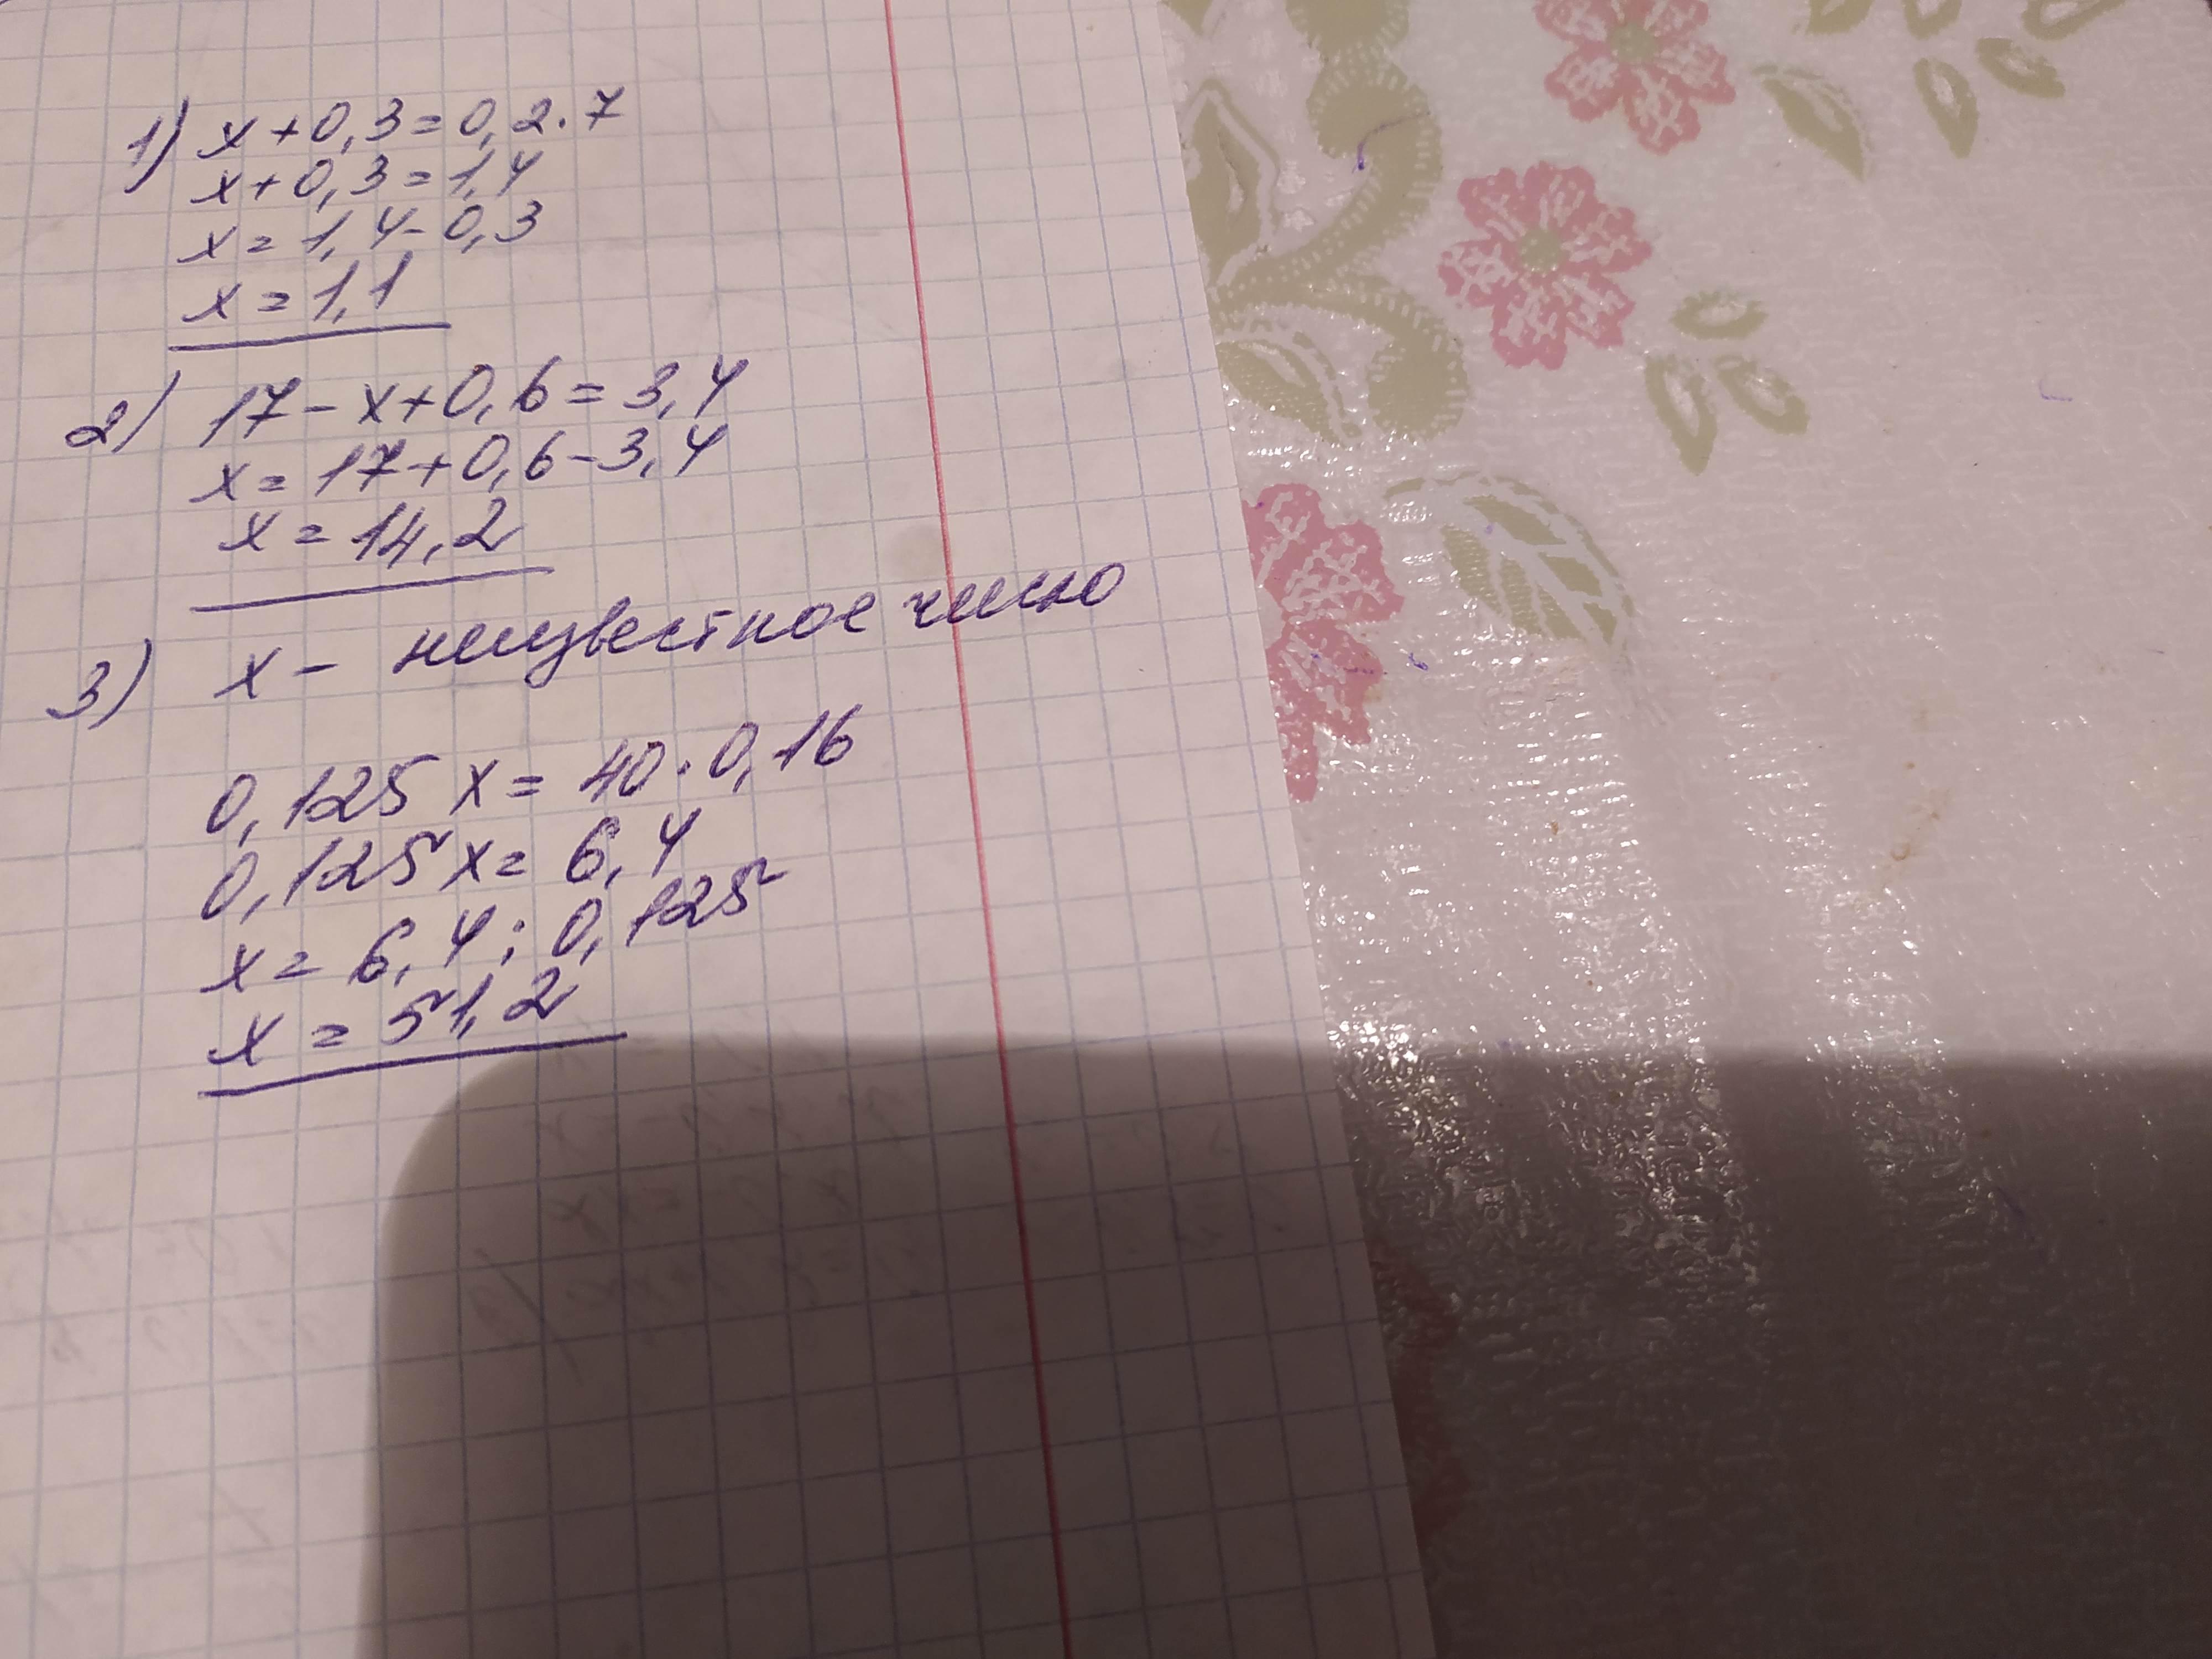 1) x+0,3=0,2·7
x+0,3=1,4
x=1,4-0,3
x=1,1
2) 17-x+0,6=3,4
x=17+0,6-3,4
x=14,2
3) x - неизвестное число
0,125 x=40·0,16
0,125 x=6,4
x=6,4:0,125
x=51,2